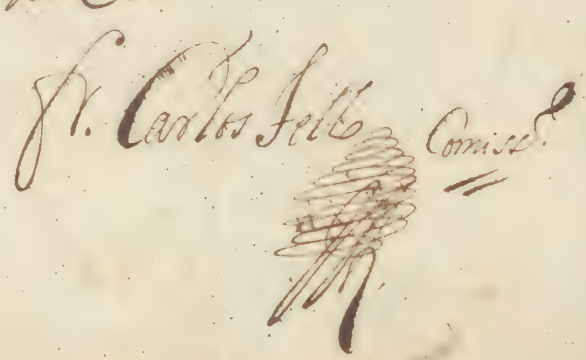 Fr. Carlos Jello Comiss.º